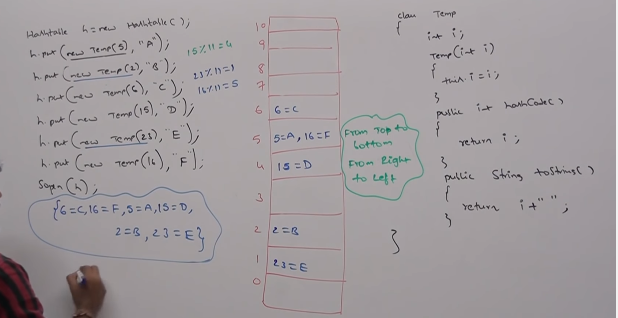 Hashtable h=new Hashtable();
h.put(new Temp(5),"A");
h.put(new Temp(2),"B");
h.put(new Temp(6),"C");
h.put(new Temp(15),"D");
h.put(new Temp(23),"E");
h.put(new Temp(16),"F");
Sopln(h);
{6=C,16=F,5=A,15=D,
2=B, 23=E}
15%11=4
23%11=1
16%11=5
10
9
8
7
6 6=C
5 5=A, 16=F
4 15=D
3
2 2=B
1 23=E
0
From Top to
bottom
From Right
to Left
class Temp
{
int i;
Temp(int i)
{
this.i=i;
}
public int hashCode()
{
return i;
}
public String toString()
{
return i+"";
}
}